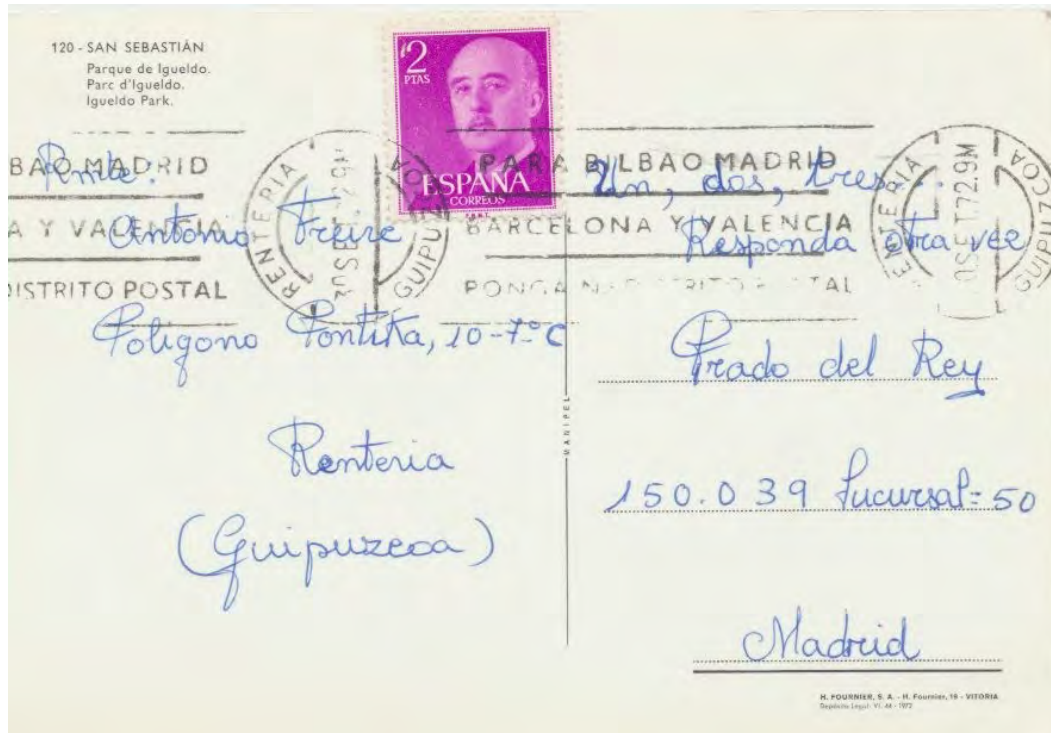 120 - SAN SEBASTIÁN
Parque de Igueldo.
Parc d'Igueldo.
Igueldo Park.
2
PTAS
ESPAÑA
CORREOS
BAO MADRID
A Y VALENCIA
DISTRITO POSTAL
RENTERIA
GUIPUZCOA
PARA BILBAO MADRID
BARCELONA Y VALENCIA
PONGA DISTRITO POSTAL
RENTERIA
SET.72.9M
GUIPUZCOA
Rmte:
Antonio Freire
Poligono Pontika, 10-7º C
Renteria
(Guipuzcoa)
MANIPEL
Un, dos, tres...
Responda otra vez
Prado del Rey
150.039 Sucursal = 50
Madrid
H. FOURNIER, S. A. - H. Fournier, 19 - VITORIA
Depósito Legal: VI. 44 - 1972